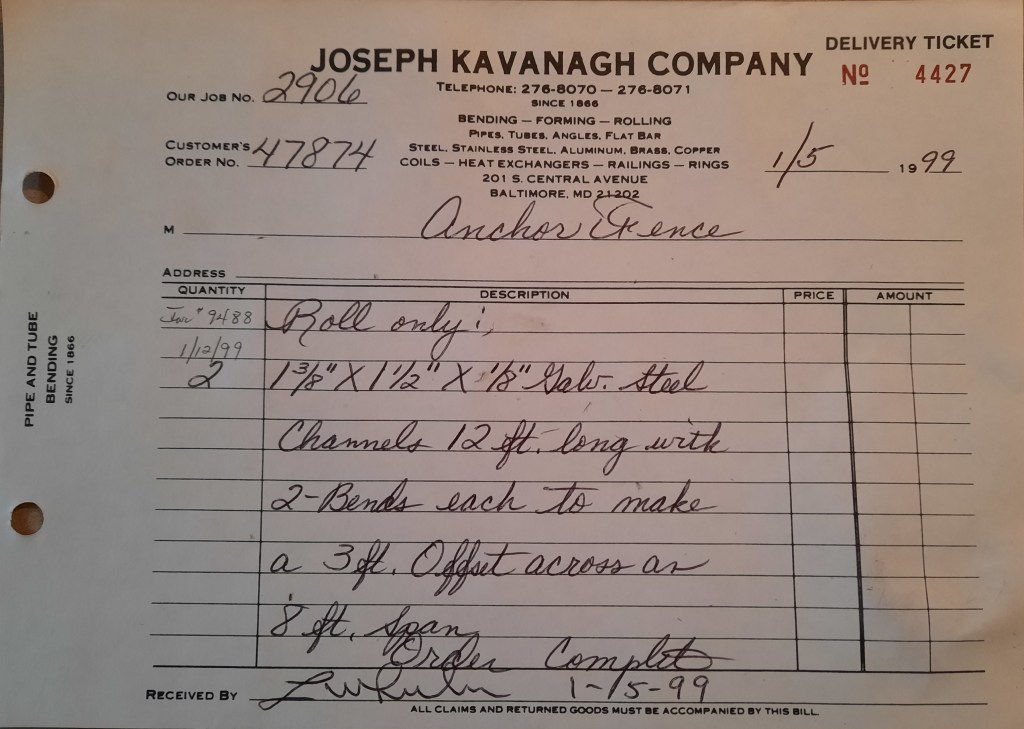 DELIVERY TICKET
JOSEPH KAVANAGH COMPANY
Nº 4427
TELEPHONE: 276-8070 — 276-8071
SINCE 1866
OUR JOB NO. 2906
BENDING — FORMING — ROLLING
PIPES, TUBES, ANGLES, FLAT BAR
CUSTOMER'S ORDER NO. 47874
STEEL, STAINLESS STEEL, ALUMINUM, BRASS, COPPER
COILS — HEAT EXCHANGERS — RAILINGS — RINGS
1/5 1999
201 S. CENTRAL AVENUE
BALTIMORE, MD 21202
M Anchor Fence
ADDRESS
QUANTITY DESCRIPTION PRICE AMOUNT
Inv # 9488 Roll only:
1/12/99
2 1 3/8" X 1 1/2" X 1/8" Galv. Steel
Channels 12 ft. long with
2-Bends each to make
a 3 ft. Offset across an
8 ft. Span
Order Complet
RECEIVED BY 1-15-99
ALL CLAIMS AND RETURNED GOODS MUST BE ACCOMPANIED BY THIS BILL
PIPE AND TUBE
BENDING
SINCE 1866